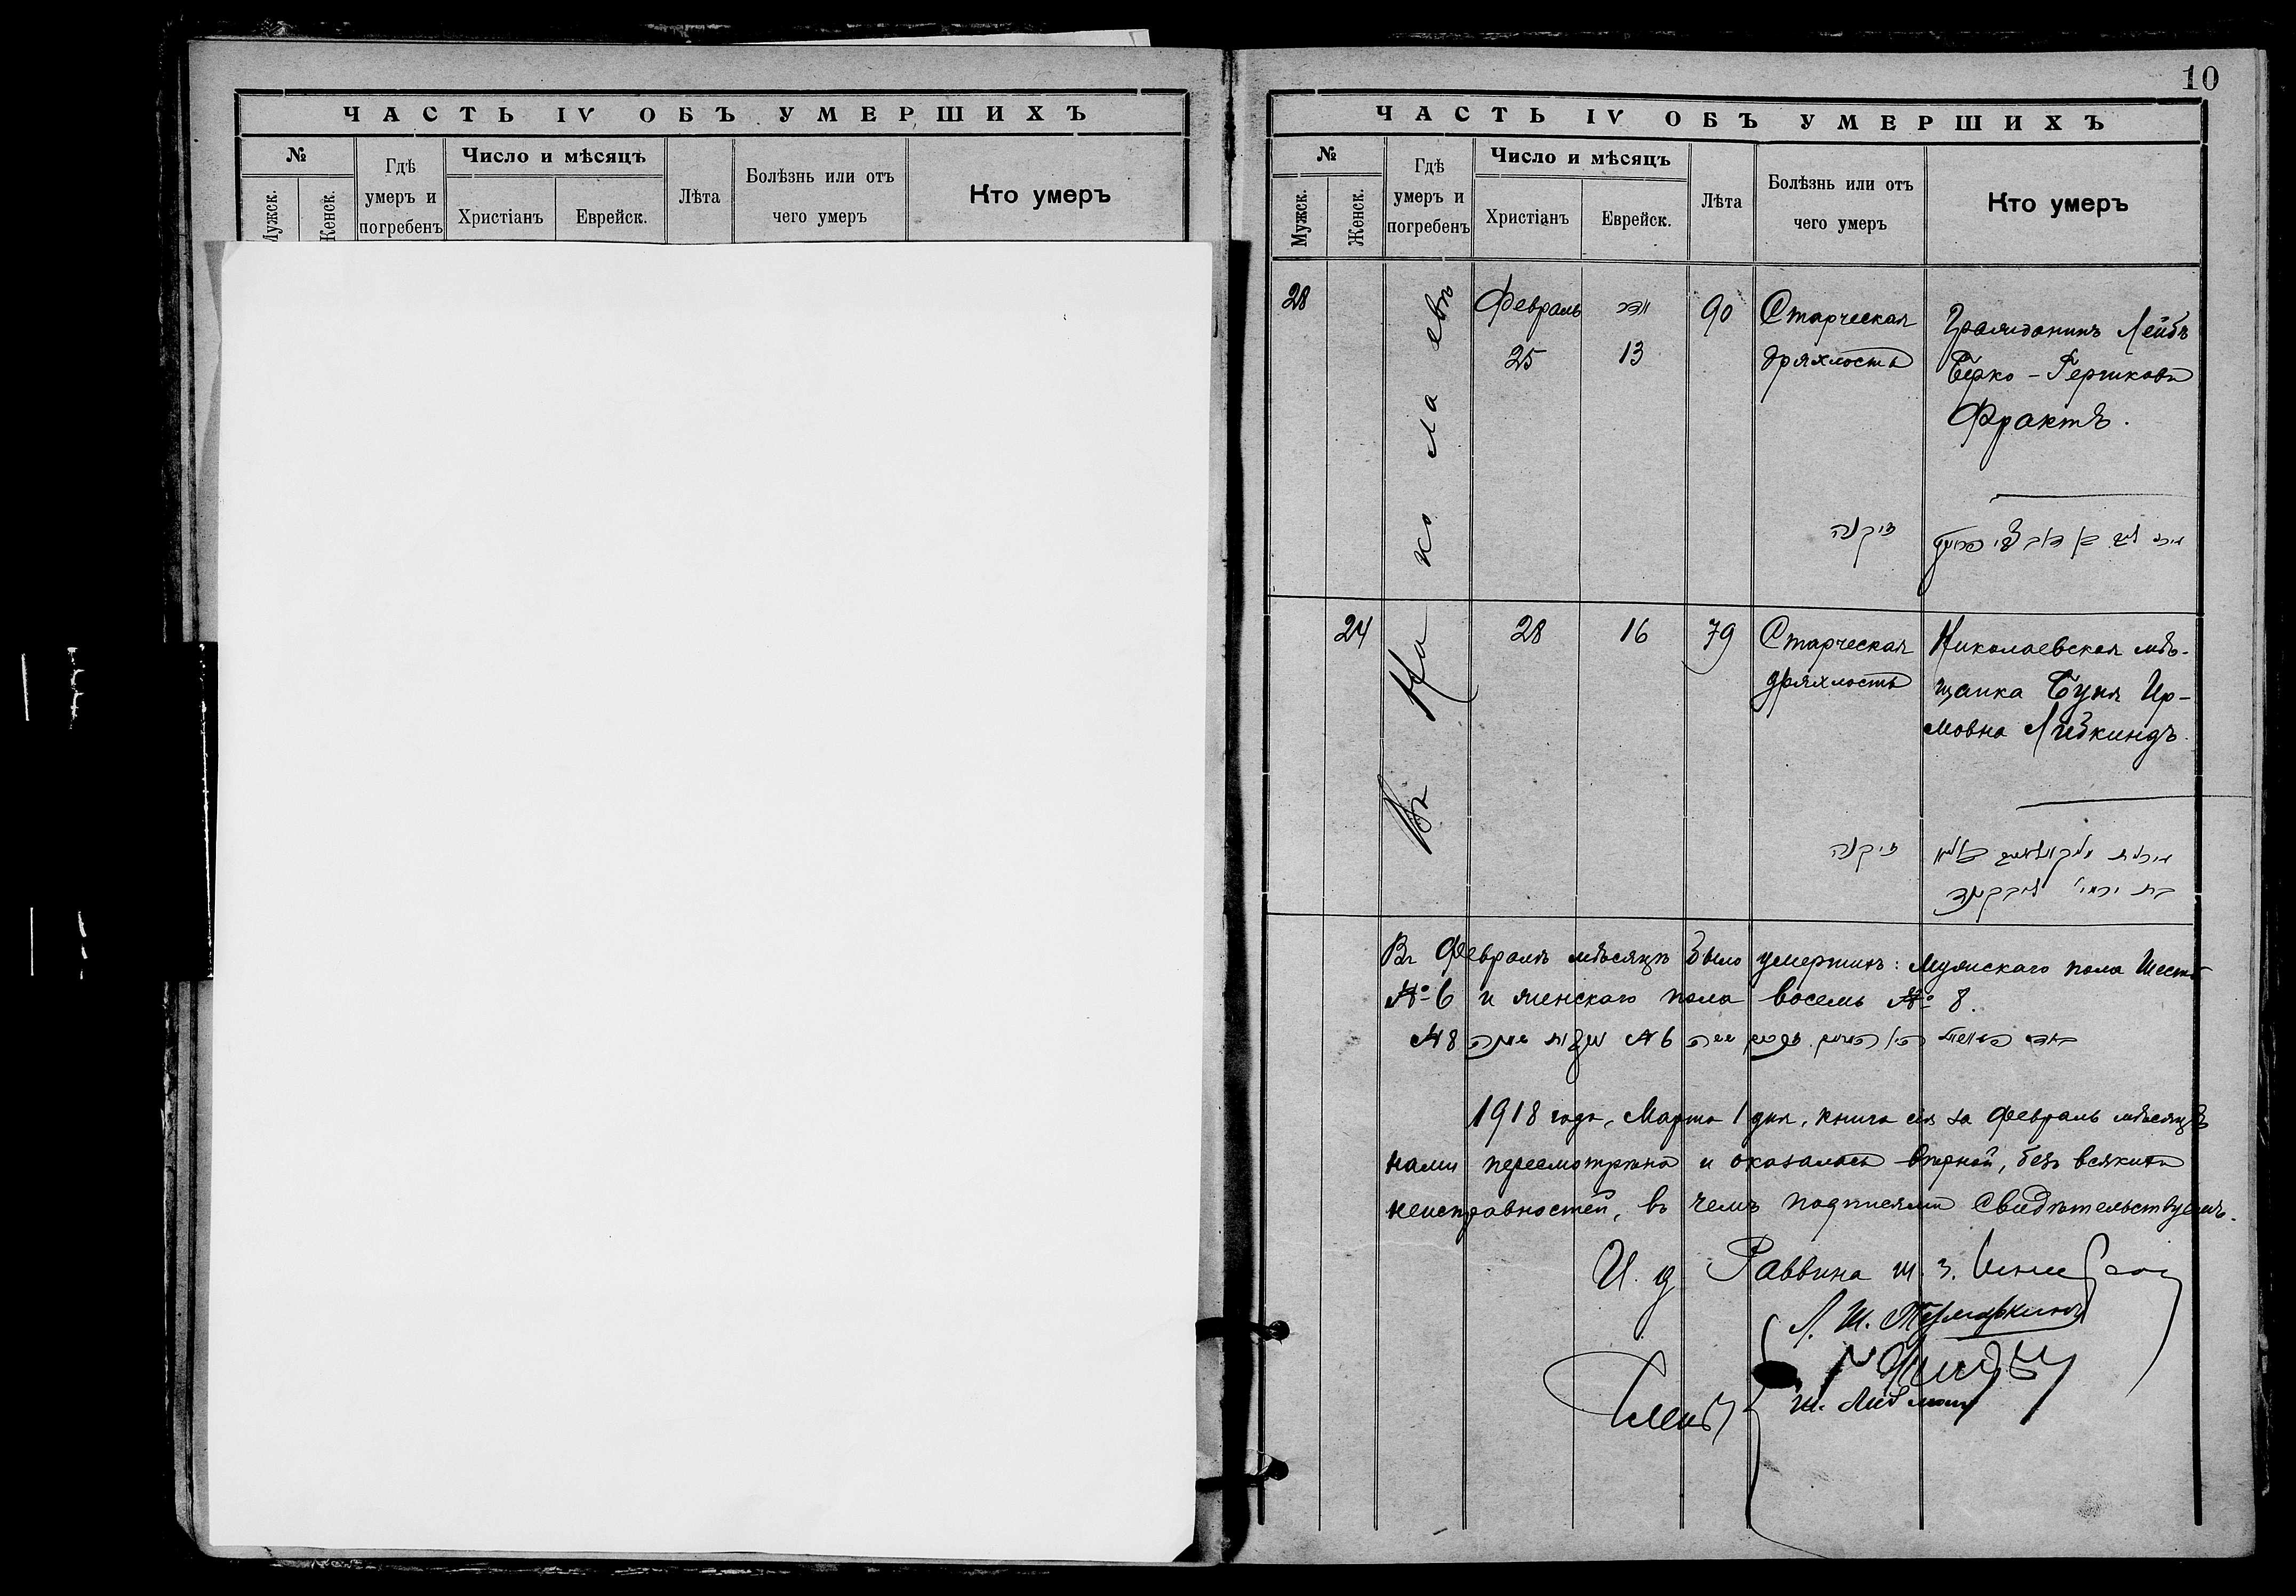 10
ЧАСТЬ IV ОБЪ УМЕРШИХЪ
№
Мужск.
Женск.
Гдѣ умеръ и погребенъ
Число и мѣсяцъ
Христіанъ
Еврейск.
Лѣта
Болѣзнь или отъ чего умеръ
Кто умеръ
ЧАСТЬ IV ОБЪ УМЕРШИХЪ
№
Мужск.
Женск.
Гдѣ умеръ и погребенъ
Число и мѣсяцъ
Христіанъ
Еврейск.
Лѣта
Болѣзнь или отъ чего умеръ
Кто умеръ
Въ Николаевѣ
28 Февраль אדר 90 Старческая Гражданинъ Лейбъ
25 13 дряхлость Берко-Гершковъ
Фрактъ.
זיקנה
24 28 16 79 Старческая Николаевская мѣ-
дряхлость щанка Буня Ир-
мовна Либкиндъ.
זיקנה
Въ Февралѣ мѣсяцѣ было умершихъ: мужскаго пола шесть
№ 6 и женскаго пола восемь № 8.
1918 года, Марта 1 дня, книга сія за Февраль мѣсяцъ
нами пересмотрѣна и оказалась вѣрной, безъ всякихъ
неисправностей, въ чемъ подписями свидѣтельствуемъ.
И. д. Раввина
Ш. Либман